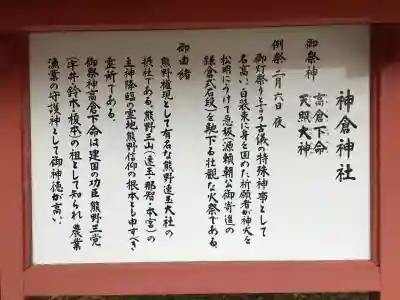 神倉神社
御祭神
高倉下命
天照大神
例祭 二月六日夜
御灯祭りと言う古儀の特殊神事として
名高い。白装束に身を固めた祈願者が神火を
松明にうけて急坂(源頼朝公御寄進の
鎌倉式石段)を馳下る壮観な火祭である。
御由緒
熊野権現として有名な熊野速玉大社の
摂社である。熊野三山(速玉・那智・本宮)の
主神降臨の霊地熊野信仰の根本とも申すべき
霊所である。
御祭神高倉下命は建国の功臣熊野三党
(宇井・鈴木・榎本)の祖として知られ農業
漁業の守護神として御神徳が高い。